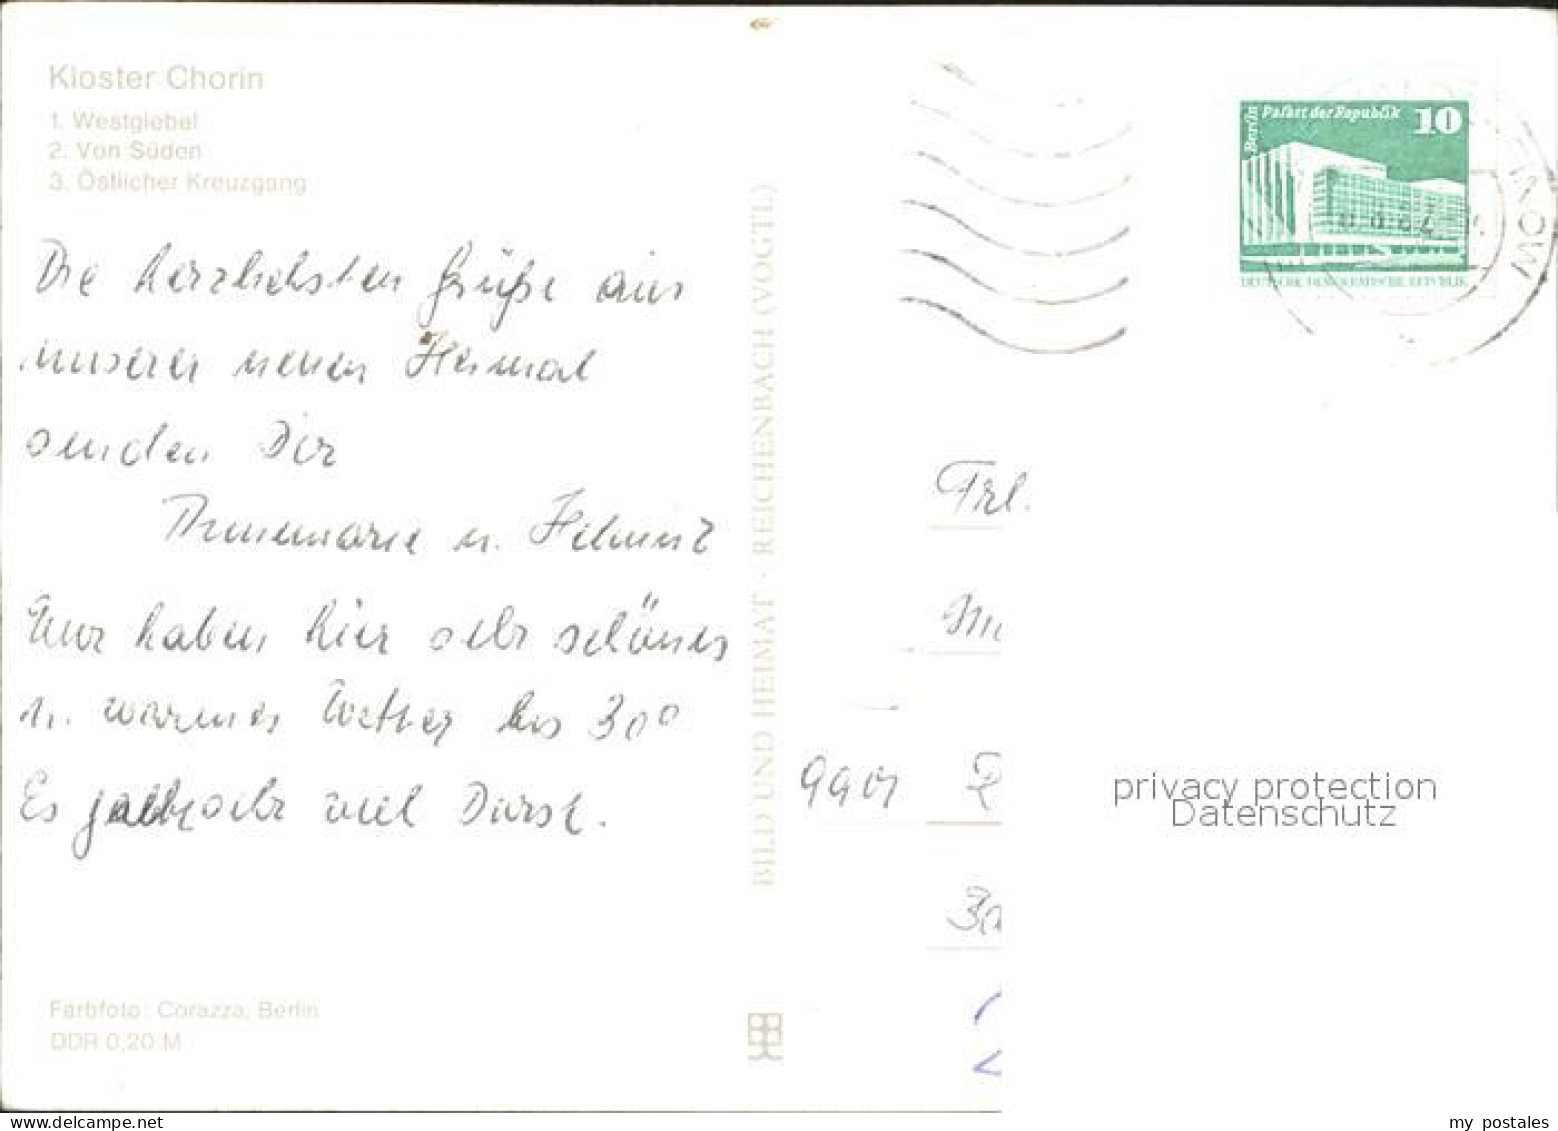 Kloster Chorin
1. Westgiebel
2. Von Süden
3. Östlicher Kreuzgang
Die herzlichsten Grüße aus
unserer neuen Heimat
senden Dir
Annemarie u. Helmut
Wir haben hier sehr schönes
u. warmes Wetter bis 30°
Es gibt sehr viel Durst.
Farbfoto: Corazza, Berlin
DDR 0,20 M
BILD UND HEIMAT · REICHENBACH (VOGTL)
Berlin Palast der Republik 10
DEUTSCHE DEMOKRATISCHE REPUBLIK
Frl.
9901
privacy protection
Datenschutz
delcampe.net
my postales